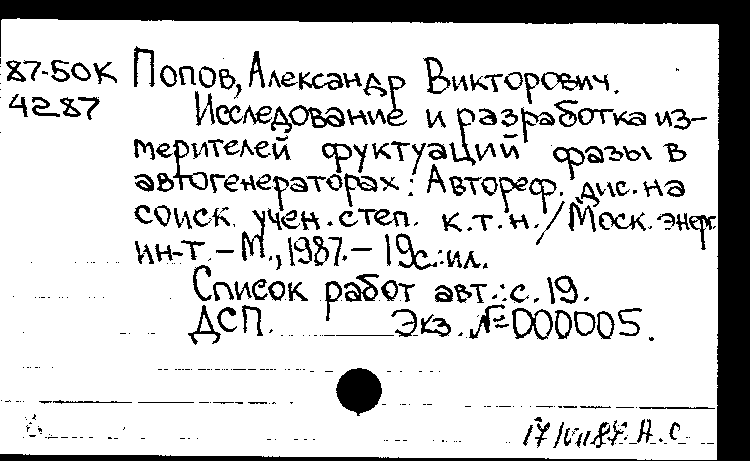 87-50К Попов, Александр Викторович.
4287 Исследование и разработка из-
мерителей фуктуаций фазы в
автогенераторах: Автореф. дис. на
соиск. учен. степ. к.т.н. / Моск. энерг.
ин-т. - М., 1987. - 19с.: ил.
Список работ авт.: с. 19.
ДСП. Экз. №000005.
17/VII 87. А.С